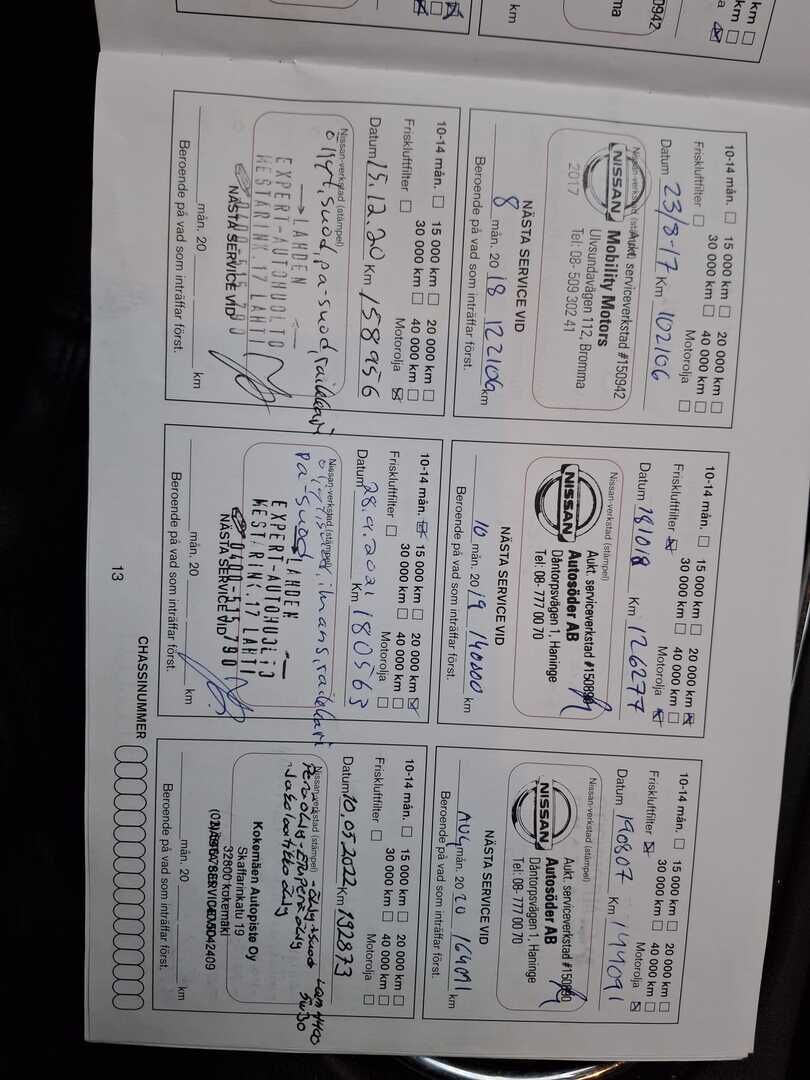 0942
ma
km
km
km
10-14 mån. 15 000 km 20 000 km
30 000 km 40 000 km
Friskluftfilter Motorolja
Datum 23/8-17 Km 102106
Nissan-verkstad (stämpel)
NISSAN
Aukt serviceverkstad #150942
Mobility Motors
Ulvsundavägen 112, Bromma
Tel: 08- 509 302 41
2017
NÄSTA SERVICE VID
8 mån. 20 18 122106 km
Beroende på vad som inträffar först.
10-14 mån. 15 000 km 20 000 km
30 000 km 40 000 km
Friskluftfilter Motorolja
Datum 181018 Km 126277
Nissan-verkstad (stämpel)
NISSAN
Aukt. serviceverkstad #150890
Autosöder AB
Dåntorpsvägen 1, Haninge
Tel: 08- 777 00 70
NÄSTA SERVICE VID
10 mån. 20 19 140000 km
Beroende på vad som inträffar först.
10-14 mån. 15 000 km 20 000 km
30 000 km 40 000 km
Friskluftfilter Motorolja
Datum 190807 Km 144091
Nissan-verkstad (stämpel)
NISSAN
Aukt serviceverkstad #150890
Autosöder AB
Dåntorpsvägen 1, Haninge
Tel: 08- 777 00 70
NÄSTA SERVICE VID
AUG mån. 20 20 164091 km
Beroende på vad som inträffar först.
10-14 mån. 15 000 km 20 000 km
30 000 km 40 000 km
Friskluftfilter Motorolja
Datum 15.12.20 Km 158956
Nissan-verkstad (stämpel)
öljyt, suod, pa-suod, raikkari
LAHDEN
EXPERT-AUTOHUOLTO
MESTARINK.17 LAHTI
0400-515 790
NÄSTA SERVICE VID
mån. 20 km
Beroende på vad som inträffar först.
10-14 mån. 15 000 km 20 000 km
30 000 km 40 000 km
Friskluftfilter Motorolja
Datum 28.9.2021 Km 180563
Nissan-verkstad (stämpel)
öljyt, suod, ilmans, raikkari
pa-suod
LAHDEN
EXPERT-AUTOHUOLTO
MESTARINK.17 LAHTI
0400-515 790
NÄSTA SERVICE VID
mån. 20 km
Beroende på vad som inträffar först.
10-14 mån. 15 000 km 20 000 km
30 000 km 40 000 km
Friskluftfilter Motorolja
Datum 10.05.2022 Km 192873
Nissan-verkstad (stämpel)
-öljy+suod 5w30
Peräöljy -Etuperäöljy
Jakolaatikko öljy
Kokemäen Autopiste Oy
Skaffarinkatu 19
32800 kokemäki
NÄSTA SERVICE VID
mån. 20 km
Beroende på vad som inträffar först.
13
CHASSINUMMER